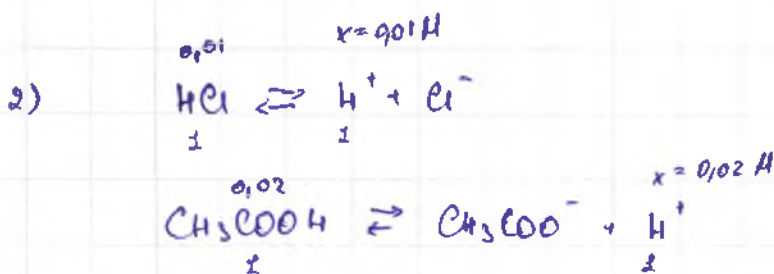 0,01 x=0,01 M
2) HCl ⇄ H⁺ + Cl⁻
1 1
0,02 x = 0,02 M
CH₃COOH ⇄ CH₃COO⁻ + H⁺
1 1